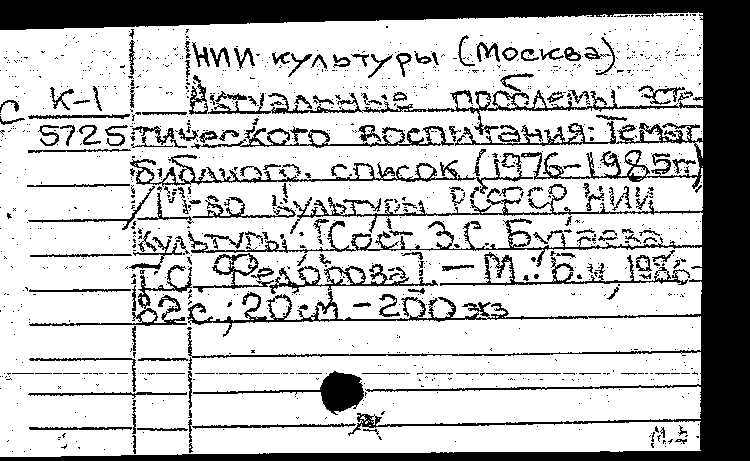 НИИ культуры (Москва)
С К-1 Актуальные проблемы эсте-
5725 тического воспитания: Темат.
библиогр. список (1976-1985гг)
/М-во культуры РСФСР, НИИ
культуры; [Сост. З.С. Бутаева,
Т.С. Федорова]. — М.: Б.и, 1986-
82с.; 20см. - 200экз